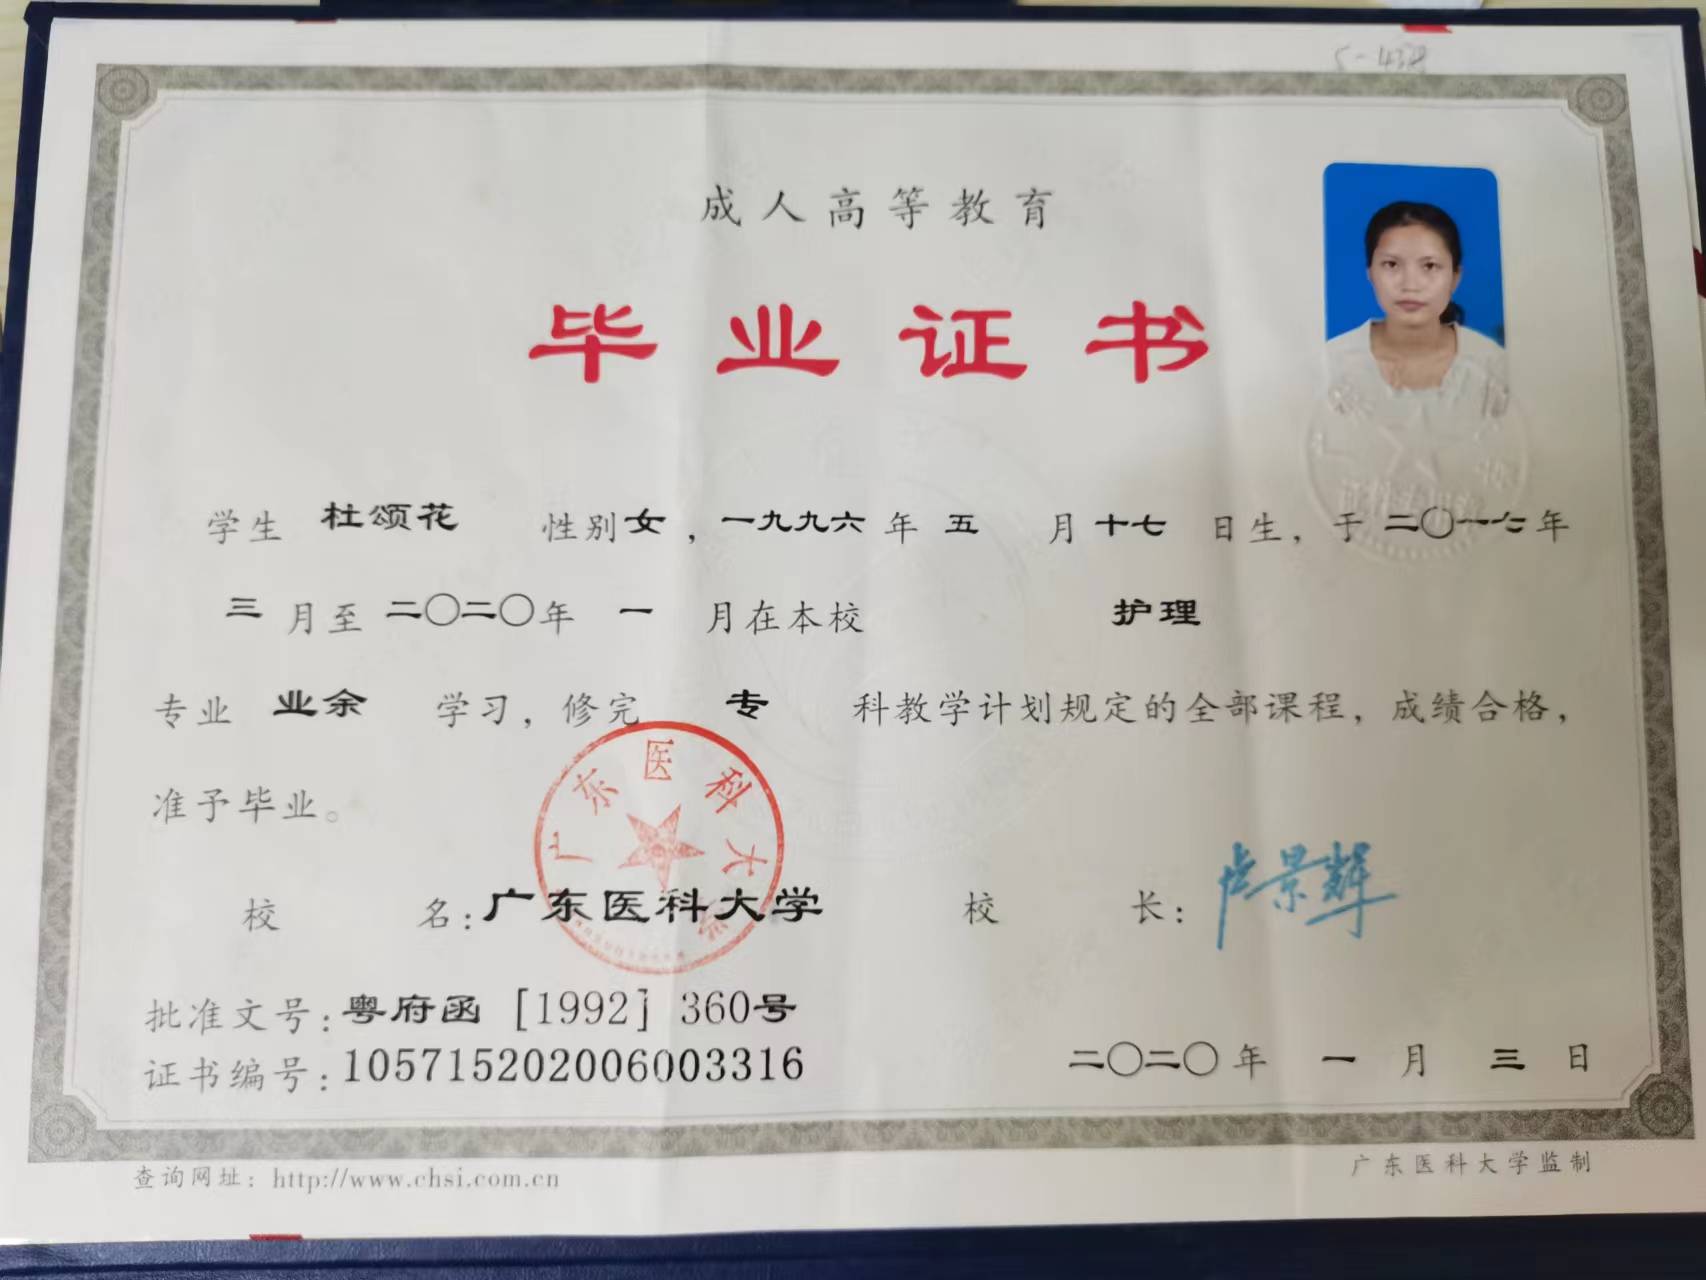 成人高等教育
毕业证书
学生 杜颂花 性别 女，一九九六 年 五 月 十七 日生，于 二〇一七 年
三 月至 二〇二〇 年 一 月在本校 护理
专业 业余 学习，修完 专 科教学计划规定的全部课程，成绩合格，
准予毕业。
广东医科大学
校 名：广东医科大学 校 长：卢景辉
批准文号：粤府函［1992］360号
证书编号：105715202006003316 二〇二〇 年 一 月 三 日
查询网址：http://www.chsi.com.cn 广东医科大学监制